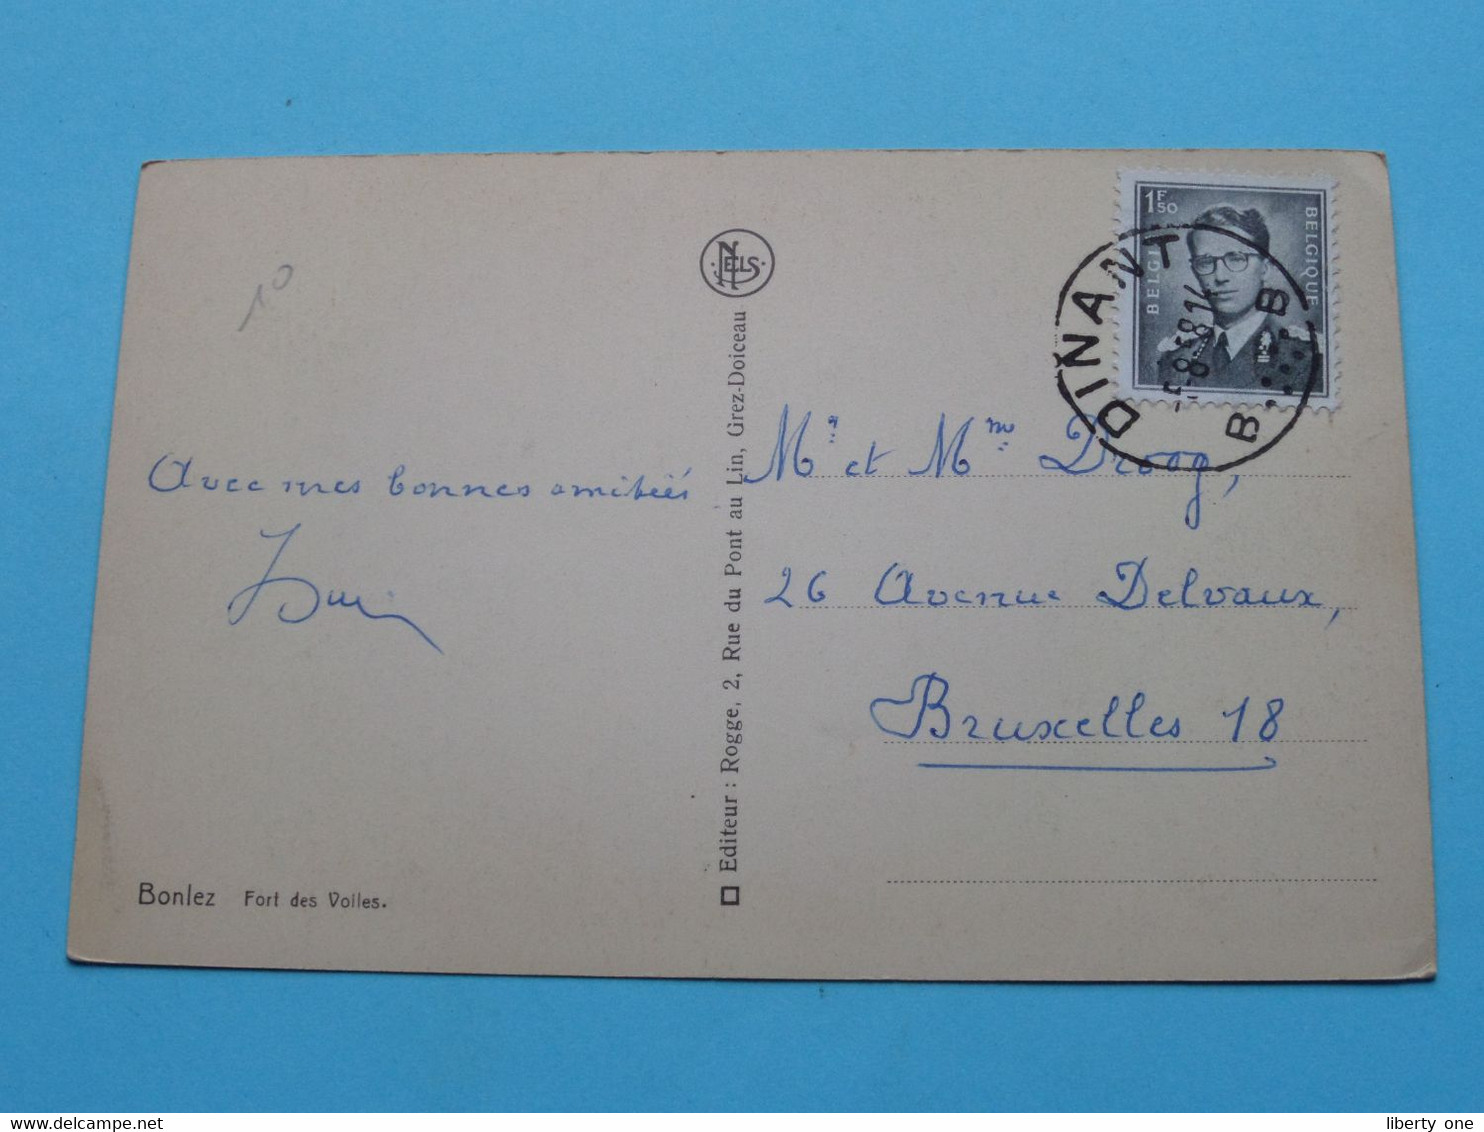 10
NELS
1F50
BELGIQUE
BELGIË
DINANT
-5-8-58 14
B B
Avec mes bonnes amitiés
Mr et Mme Droog,
26 Avenue Delvaux,
Bruxelles 18
Editeur : Rogge, 2, Rue du Pont au Lin, Grez-Doiceau
Bonlez Fort des Voiles.
delcampe.net
liberty one